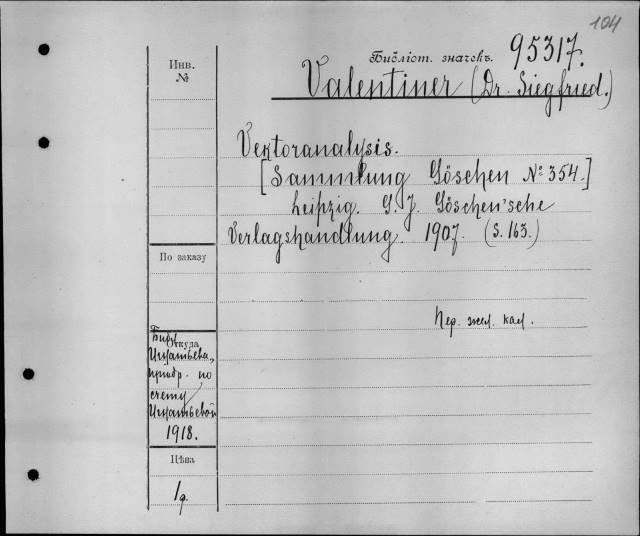 104
Инв.
№
Библіот. значекъ. 95317.
Valentiner (Dr. Siegfried.)
Vektoranalysis.
[Sammlung Göschen № 354.]
Leipzig. G. J. Göschen'sche
Verlagshandlung. 1907. (S. 163.)
По заказу
Пер. жел. кал.
Откуда
Библ
Игнатьева,
приобр. по
счету
Игнатьевой
1918.
Цѣна